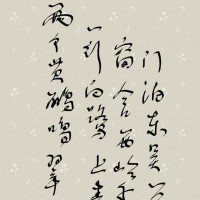 两个黄鹂鸣翠
一行白鹭上青
窗含西岭千
门泊东吴万